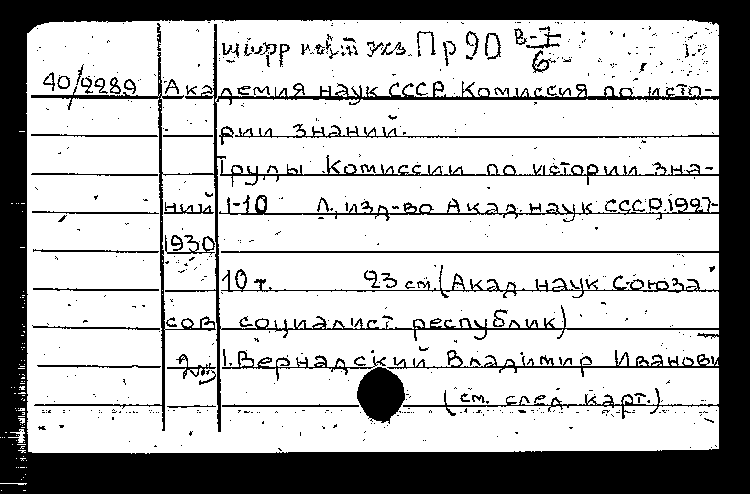 шифр пост экз Пр90 В-7/6
40/2289 Академия наук СССР. Комиссия по исто-
рии знаний.
Труды Комиссии по истории зна-
ний 1-10 Л, изд-во Акад. наук СССР, 1927-
1930
10 т. 23 см. (Акад. наук Союза
сов социалист. республик)
1. Вернадский Владимир Иванови
(см. след. карт.)